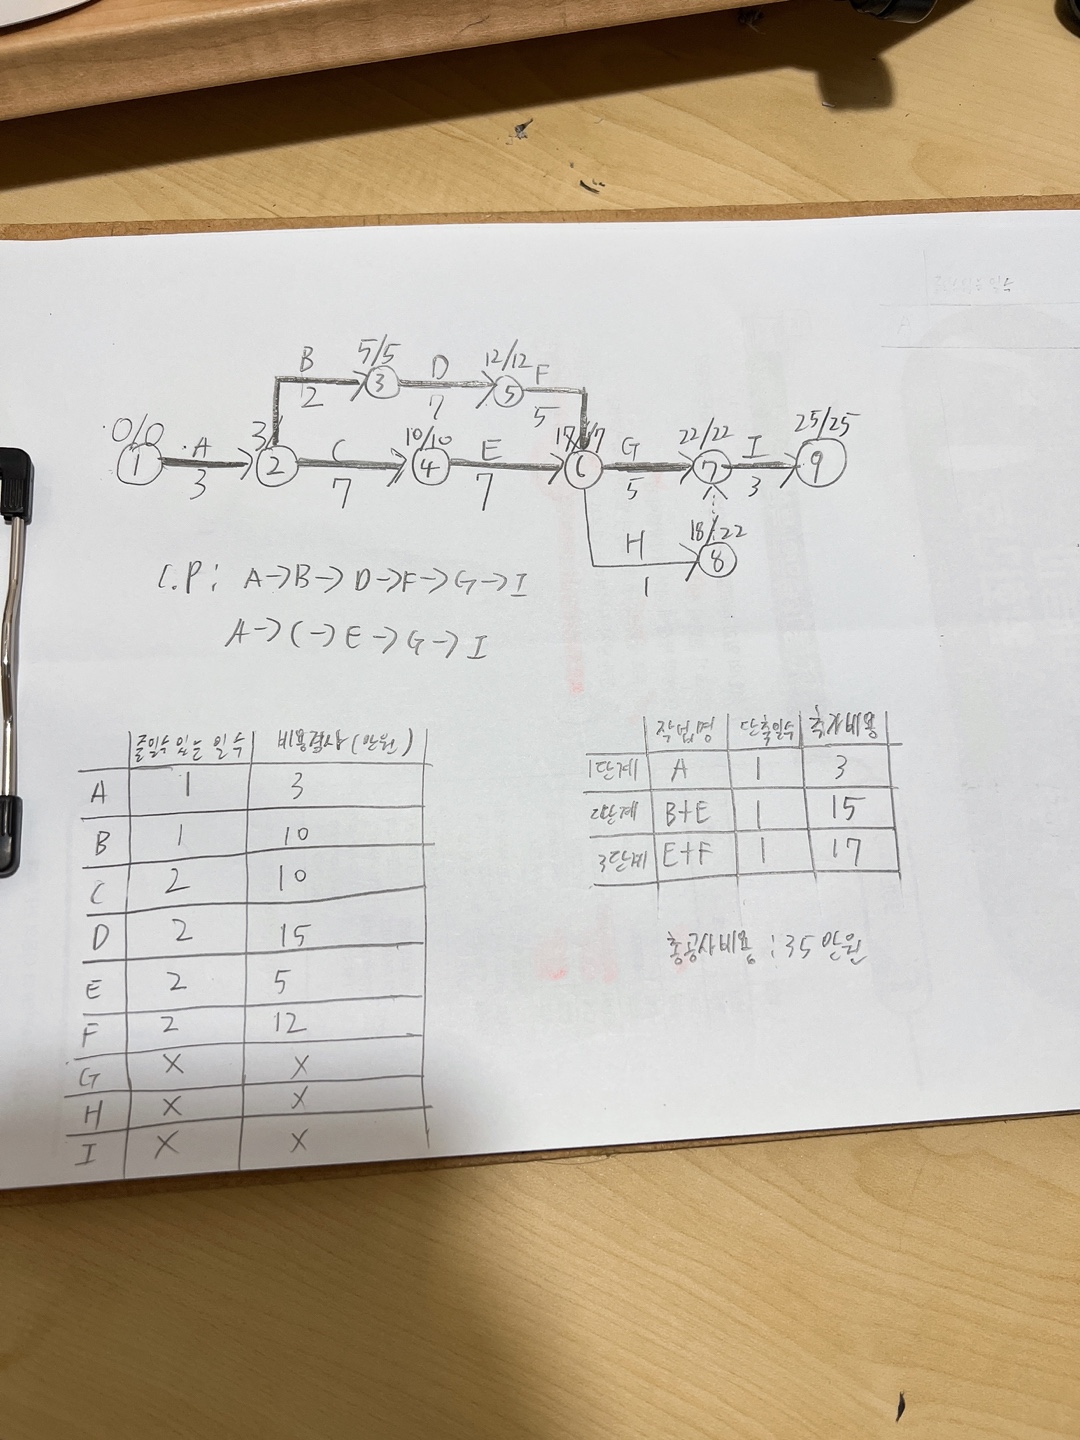 B 5/5 D 12/12 F
2 ③ 7 ⑤ 5
0/0 A 3/ C 10/10 E 17/17 G 22/22 I 25/25
① 3 ② 7 ④ 7 ⑥ 5 ⑦ 3 ⑨
H 18/22
1 ⑧
C.P: A→B→D→F→G→I
A→C→E→G→I
줄일수 있는 일수 비용경사(만원)
A 1 3
B 1 10
C 2 10
D 2 15
E 2 5
F 2 12
G X X
H X X
I X X
작업명 단축일수 추가비용
1단계 A 1 3
2단계 B+E 1 15
3단계 E+F 1 17
총공사비용 : 35만원